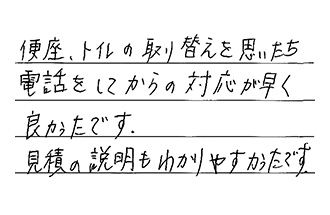 便座、トイレの取り替えを思いたち
電話をしてからの対応が早く
良かったです.
見積の説明もわかりやすかったです.